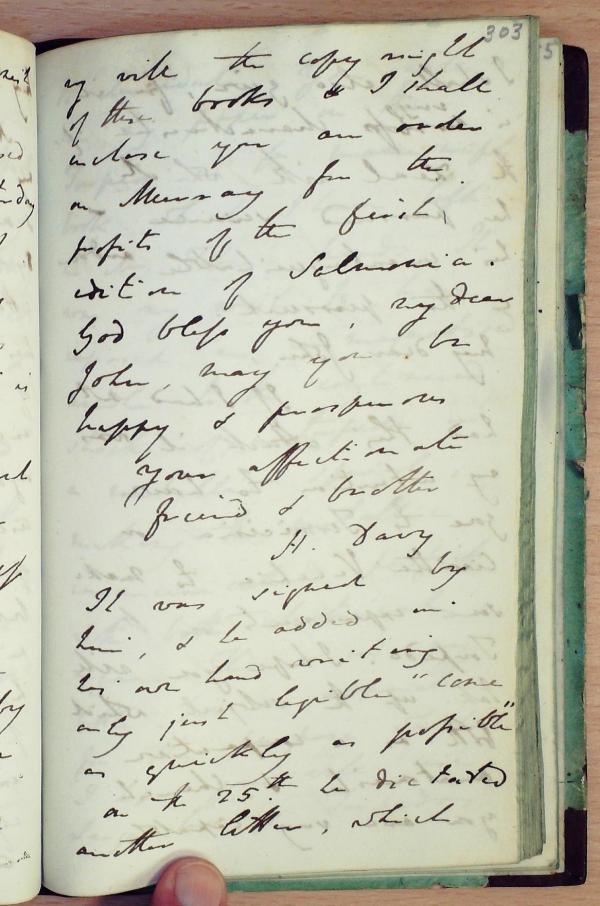 303
my will the copy right
of these books & I shall
inclose you an order
on Murray for the
profits of the first
edition of Salmonia.
God bless you, my dear
John, may you be
happy & prosperous
your affectionate
friend & brother
H. Davy
It was signed by
him, & he added in
his own hand writing
only just legible "come
as quickly as possible"
on the 25.th he dictated
another letter, which